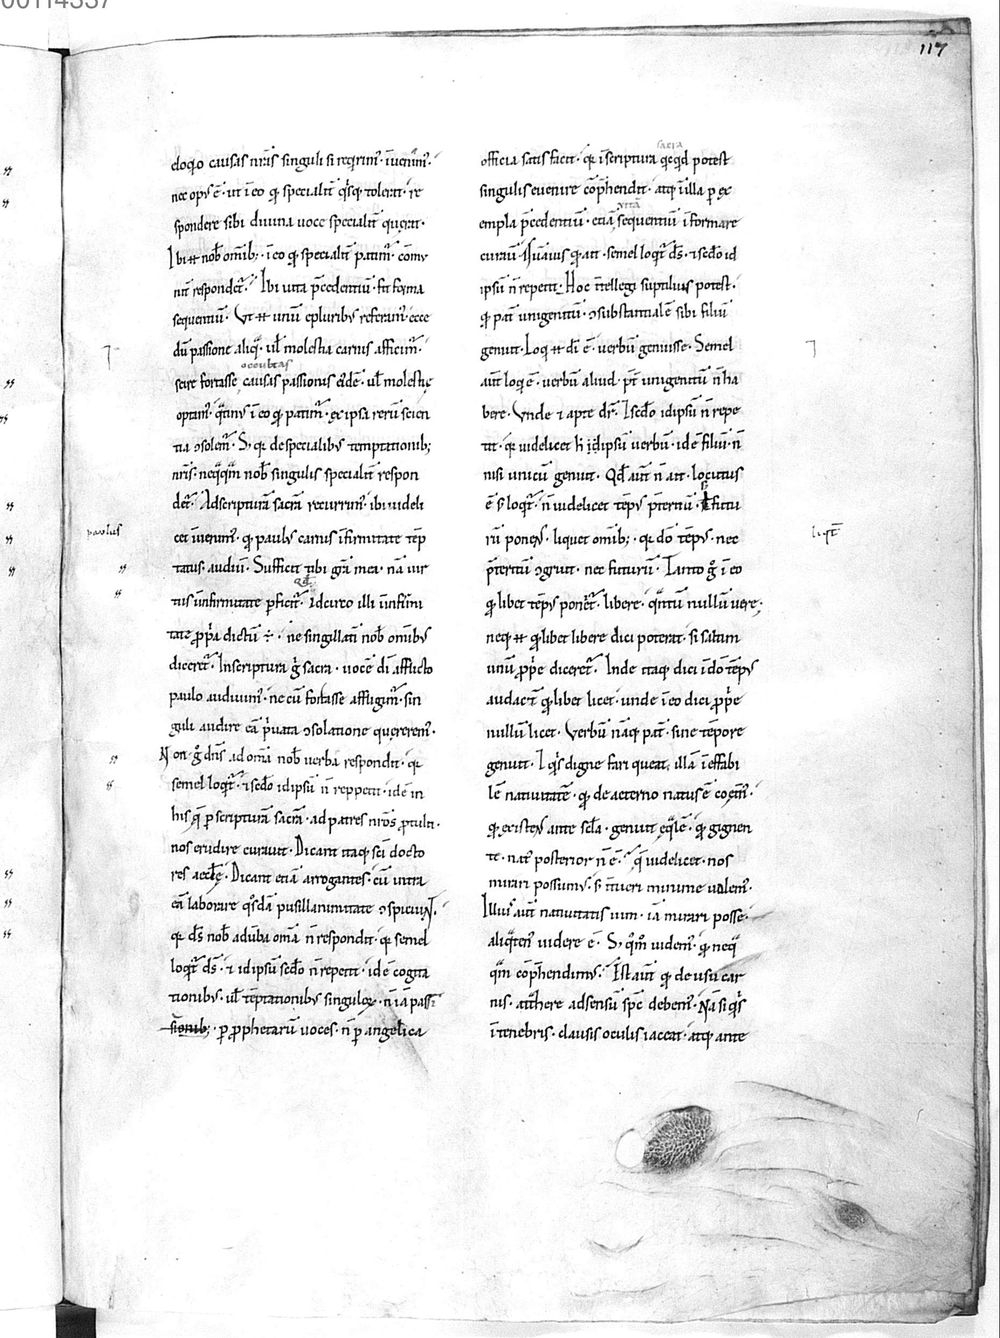 00114337
117
eloqio causas nr̄as singuli si reqrim᷑· īuenim᷑·
nec opus ē· ut ī eo q̄ specialit̄ q̄sq; tolerat· re
spondere sibi diuina uoce specialit̄ querat·
Ibi н̄ nob̄ omīb;· ī eo qd̄ specialit̄ patim᷑· com̄u
nit̄ respondet᷑· Ibi uita p̄cedentiū· fit forma
sequentiū· Vt н̄ unū e pluribus referam᷑· ecce
dū passione aliq̄· ul̄ molestia carnis afficim᷑·
occultas
scire fortasse causas passionis eidē· ul̄ molestię
optam᷑· q̄tinus ī eo qd̄ patim᷑· ex ipsa rerū scien
tia ↄsolem᷑· S; q̄ de specialibus temptationib;
nr̄is· neq̄q̄m nob̄ singulis specialit̄ respon
det᷑· Ad scripturā sacrā recurrim᷑· ibi uideli
paulus
cet īuenim᷑· qd̄ paulus carnis īfirmitate tēp
tatus· audiuī· Sufficit tibi gr̄a mea· nā uir
Qđ
tus īnfirmitate ꝑficit᷑· Idcirco illi īnfirmi
tate ꝓp̄a dictū ÷· ne singillatī nob̄ omībus
diceret᷑· In scriptura ḡ sacra· uocē dī afflicto
paulo audiuim᷑· ne cū fortasse affligim᷑· sin
guli audire eā p̄uata ↄsolatione quererem᷑·
Non ḡ dn̄s ad om̄ia nob̄ uerba respondit· q̄
semel loq̄t᷑· ⁊ sc̄do idipsū n̄ reppetit· id ē in
his q̄ ꝑ scripturā sacrā· ad patres nr̄os ꝓtulit·
nos erudire curauit· Dicant itaq; sc̄i docto
res aecl̄ę· Dicant etiā arrogantes· cū intra
eā laborare q̄sdā pusillanimitate ↄspiciuN̄t·
q̄ d̄s nob̄ ad uerba om̄ia n̄ respondit· q̄ semel
loq̄t᷑ d̄s· ⁊ idipsū sc̄do n̄ repetit· id ē cogita
tionibus· ul̄ tēptationibus singulorꝝ· n̄ iā passi
sionib;· ꝑ ꝓphetarū uoces· n̄ ꝑ angelica
sacra
officia satis facit· q̄ ī scriptura q̄cqd̄ potest
singulis euenire cōp̄hendit· atq; ī illa ꝑ ex
uitā
empla p̄cedentiū· etiā sequentiū īformare
curauī· Suauius qd̄ ait· semel loq̄t᷑ d̄s· ⁊ sc̄do id
ipsū n̄ repetit· Hoc ītellegi suptilius potest·
qd̄ pat᷑ unigenitū· ↄsubstantialē sibi filiū
genuit· Loq̄ н̄ dī ē· uerbū genuisse· Semel
aūt loq̄ ē· uerbū aliud· p̄t unigenitū n̄ ha
bere· Vnde ⁊ apte dr̄· Isc̄do idipsū n̄ repe
tit· q̄ uidelicet h̄ idipsū uerbū· id ē filiū· n̄
nisi unicū genuit· Qd̄ aūt n̄ ait· locutus
ē s; loq̄t᷑· n̄ uidelicet tēpus p̄teritū· s; futu
rū ponens· liquet omīb;· q̄ dō tēpus· nec
liq̄t
p̄teritū ↄgruit· nec futurū· Tanto ḡ ī eo
q̄libet tēpus ponet᷑· libere· q̄ntū nullū uere;
neq; н̄ q̄libet libere dici poterat· si saltim
unū ꝓp̄e diceret᷑· Inde itaq; dici ī dō tēpus
audacit̄ q̄libet licet· unde ī eo dici ꝓp̄e
nullū licet· Verbū nāq; pat᷑· sine tēpore
genuit· I q̄s digne fari queat· illā īeffabi
lē natiuitatē· qd̄ de aeterno natus ē coetn̄·
qd̄ existens ante scl̄a· genuit eq̄lē· qd̄ gignen
te· nat᷑ posterior n̄ ē· q̄ uidelicet· nos
mirari possumus· s; ītueri minime ualem᷑·
Illius aūt natiuitatis uim· iā mirari posse·
aliq̄ten᷑ uidere ē· S; q̄m̄ uidem᷑· qd̄ neq̄
q̄m cōp̄hendimus· Ist̄ aūt qd̄ de usu car
nis· att̄here ad sensū sp̄c debem᷑· Nā si q̄s
ī tenebris· clausis oculis iaceat· atq; ante